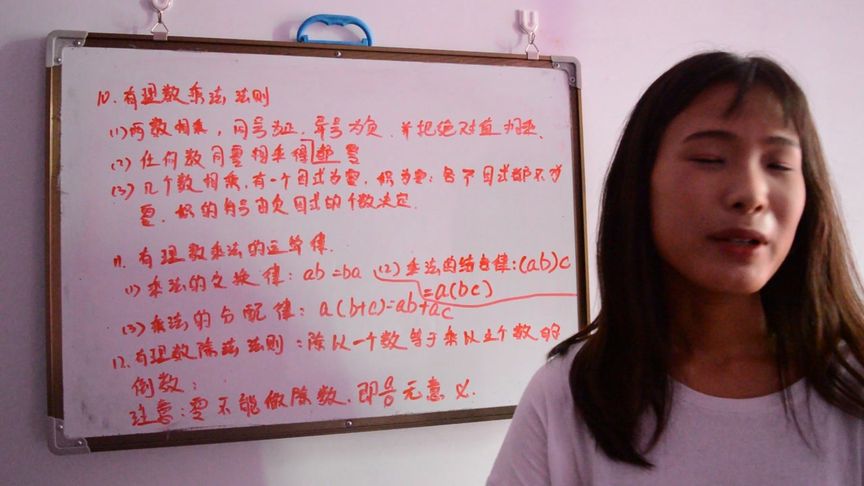 10.有理数乘法法则
(1)两数相乘，同号为正，异号为负，并把绝对值相乘.
(2)任何数同零相乘得都零
(3)几个数相乘，有一个因式为零，积为零；各个因式都不为
零，积的符号由负因式的个数决定.
11.有理数乘法的运算律.
(1)乘法的交换律：ab=ba (2)乘法的结合律：(ab)c
=a(bc)
(3)乘法的分配律：a(b+c)=ab+ac
12.有理数除法法则：除以一个数等于乘以这个数的
倒数；
注意：零不能做除数，即a/0无意义.